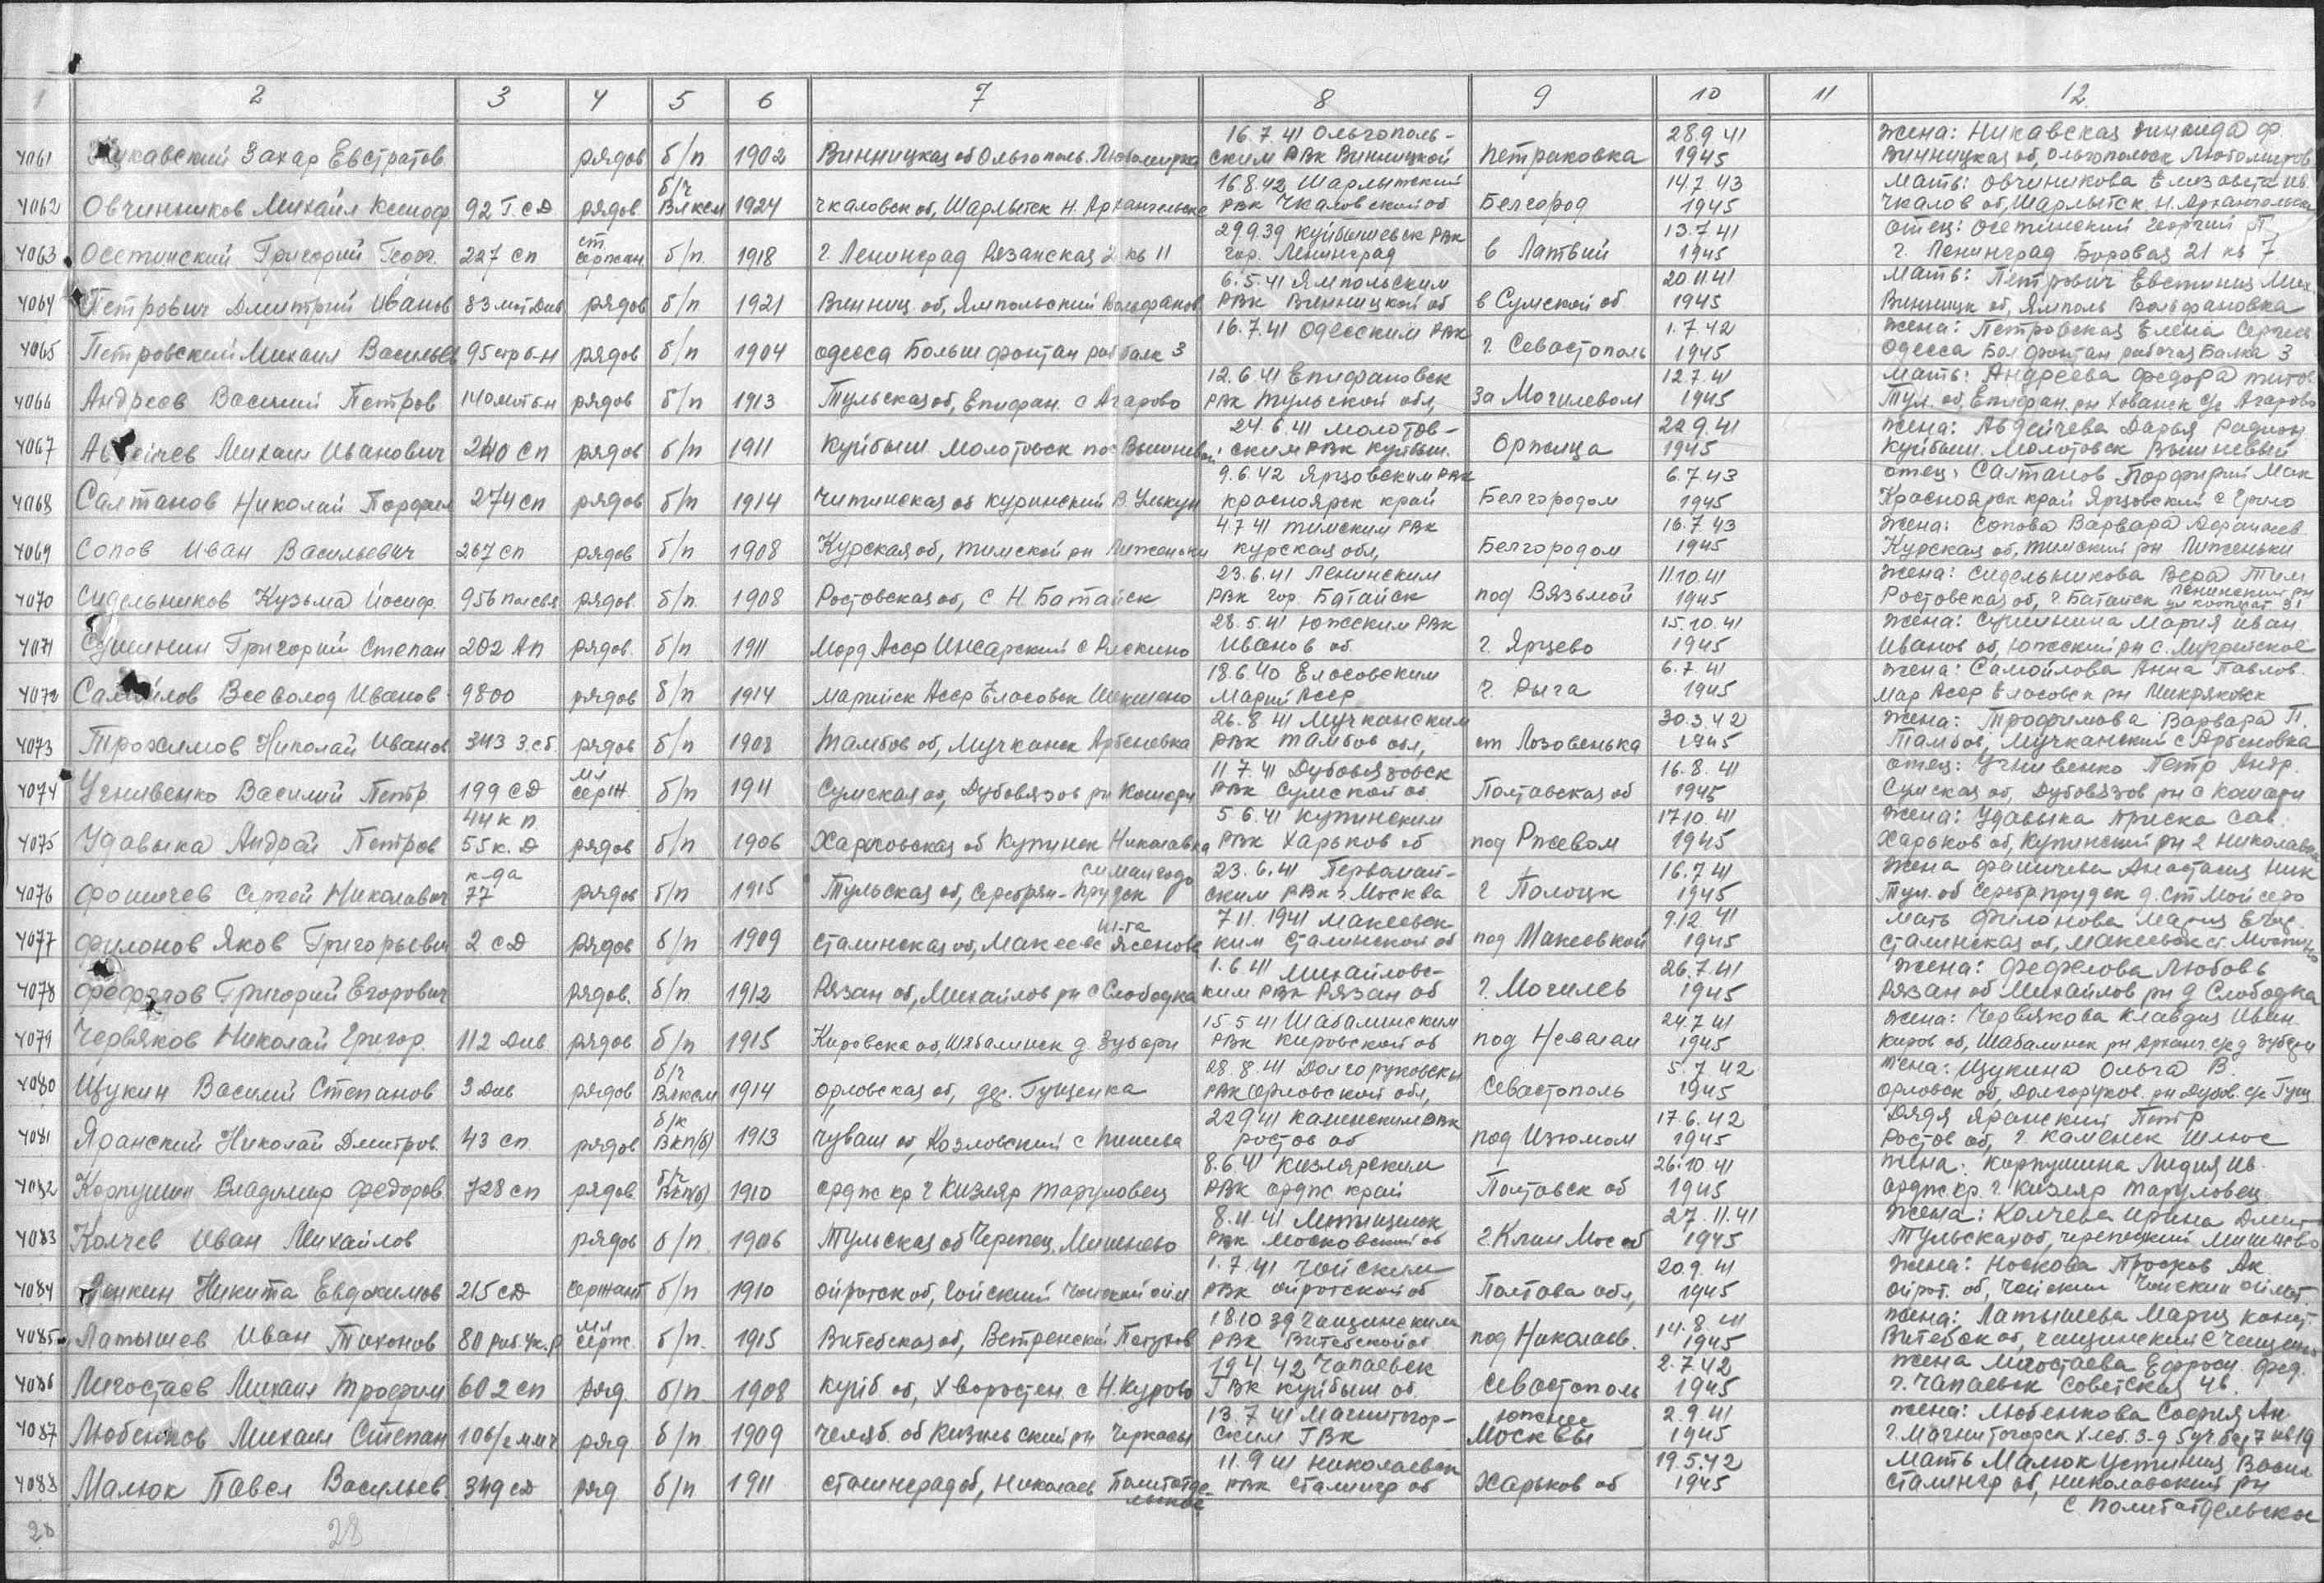 1 2 3 4 5 6 7 8 9 10 11 12
16.7.41 Ольгополь- 28.9.41 жена: Никавская Зинаида Ф.
4061 Никавский Захар Евстратов рядов б/п 1902 Винницкая об Ольгополь. Любомирка ским РВк Винницкой Петраковка 1945 Винницкая об, Ольгопольск Любомиров
б/ч 16.8.42 Шарлыкский 14.7.43 мать: Овчинникова Елизавета Ив.
4062 Овчинников Михаил Ксеноф 92 Г.сд рядов Влксм 1924 Чкаловск об, Шарлыкск Н. Архангельское РВк Чкаловской об Белгород 1945 Чкалов об, Шарлыкск Н. Архангельск
ст. 29.9.39 Куйбышевск РВк 13.7.41 отец: Осетинский Георгий П.
4063 Осетинский Григорий Георг. 227 сп сержан. б/п. 1918 г. Ленинград Рязанская 2 кв 11 гор. Ленинград в Латвии 1945 г. Ленинград Боровая 21 кв 7
6.5.41 Ямпольским 20.11.41 мать: Петрович Евгиния Мих.
4064 Петрович Дмитрий Иванов 83 мот див рядов б/п 1921 Винниц. об, Ямпольский РВк Винницкой об в Сумской об 1945 Винницк об, Ямполь Вольфановка
16.7.41 Одесским РВк 1.7.42 жена: Петровская Елена Сергеев
4065 Петровский Михаил Васильев 95 стр б-н рядов б/п 1904 Одесса Больш фонтан раб балк 3 г. Севастополь 1945 Одесса Бол фонтан рабочая Балка 3
12.6.41 Епифановск 12.7.41 мать: Андреева Федора Титов
4066 Андреев Василий Петров 140 мот б-н рядов б/п 1913 Тульская об, Епифан. с Агарово РВк Тульской обл, за Могилевом 1945 Тул. об, Епифан. рн Хованск с/с Агарово
24.6.41 Молотов- 22.9.41 жена: Авдейчева Дарья Радион
4067 Авдейчев Михаил Иванович 240 сп рядов б/п 1911 Куйбыш Молотовск пос Вишневый ским РВк Куйбыш. Оржица 1945 Куйбыш. Молотовск Вишневый
9.6.42 Ярцовским РВк 6.7.43 отец: Салтанов Порфирий Мак
4068 Салтанов Николай Порфир 274 сп рядов б/п 1914 Читинская об Куринский В. Улькун Красноярск край Белгородом 1945 Красноярск край Ярцовский с
4.7.41 Тимским РВк 16.7.43 жена: Сопова Варвара Афанасев
4069 Сопов Иван Васильевич 267 сп рядов б/п 1908 Курская об, Тимской рн Лиженьки Курская обл, Белгородом 1945 Курская об, Тимский рн Лиженьки
23.6.41 Ленинским 11.10.41 жена: Сидельникова Вера Тим
4070 Сидельников Кузьма Иосиф. 956 пол свя рядов. б/п. 1908 Ростовская об, с Н. Батайск РВк гор. Батайск под Вязьмой 1945 Ростовская об, г. Батайск Ленинский рн
28.5.41 Южским РВк 15.10.41 жена: Сушинина Мария Иван
4071 Сушинин Григорий Степан 202 Ап рядов. б/п. 1911 Морд Асср Инсарский с Рескино Иванов об. г. Ярцево 1945 Иванов об, Южский рн с.
18.6.40 Еласовским 6.7.41 жена: Самойлова Анна Павлов.
4072 Самойлов Всеволод Иванов 9800 рядов б/п 1914 Марийск Асср Еласовск Марий Асср г. Рыга 1945 Мар Асср Еласовск рн Микряковск
26.8.41 Мучканским 30.3.42 жена: Трофимова Варвара П.
4073 Трохимов Николай Иванов 343 з.сб. рядов б/п 1908 Тамбов об, Мучканск Арбеневка РВк Тамбов обл, ст Лозовенька 1945 Тамбов, Мучканский с Арбеновка
мл 11.7.41 Дубовязовск 16.8.41 отец: Учнивенко Петр Андр.
4074 Учнивенко Василий Петр 199 сд серж. б/п 1911 Сумская об, Дубовязов рн Кошари РВк Сумской об Полтавская об 1945 Сумская об, Дубовязов рн с Кошари
44 к п 5.6.41 Купинским 17.10.41 жена: Удавыка Приска Сав.
4075 Удавыка Андрей Петров 55 к. д рядов б/п 1906 Харьковская об Купинск Николавка РВк Харьков об под Ржевом 1945 Харьков об, Купинский рн 2 Николавка
к-да 23.6.41 Первомай- 16.7.41 жена Фомичева Анастасия Ник
4076 Фомичев Сергей Николавич 77 рядов б/п 1915 Тульская об, Серебрян-Прудск ским РВк г. Москва г Полоцк 1945 Тул. об Серебр прудск д.
ш-та 7.11.1941 Макеевск 9.12.41 мать Филонова Мария
4077 Филонов Яков Григорьевич 2 сд рядов б/п 1909 Сталинская об, Макеевс Ясенова ким Сталинской об под Макеевкой 1945 Сталинская об, Макеевск ст.
1.6.41 Михайловс- 26.7.41 жена: Фефелова Любовь
4078 Григорий Егорович рядов. б/п 1912 Рязан об, Михайлов рн с Слободка ким РВк Рязан об г. Могилев 1945 Рязан об Михайлов рн д Слободка
15.5.41 Шабалинским 24.7.41 жена: Червякова Клавдия Иван.
4079 Червяков Николай Григор. 112 див рядов б/п 1915 Кировска об, Шабалинск д Зубари РВк Кировской об под Невелам 1945 Киров об, Шабалинск рн Арханг. с/с д Зубари
б/ч 28.8.41 Долгоруковски 5.7.42 жена: Щукина Ольга В.
4080 Щукин Василий Степанов 3 див рядов Влксм 1914 Орловская об, дер. Гущенка РВк Орловской обл, Севастополь 1945 Орловск об, Долгоруков. рн Дубов. с/с Гущ.
б/к 22.9.41 Каменским РВк 17.6.42 Дядя Яранский Петр
4081 Яранский Николай Дмитров. 43 сп. рядов Вкп(б) 1913 Чуваш об, Козловский с Ростов об под Изюмом 1945 Ростов об, г Каменск Шлюс
б/ч 8.6.41 Кизлярским 26.10.41 жена: Карпушина Лидия Ив.
4082 Карпушин Владимир Федоров. 728 сп рядов. Вкп(б) 1910 Ордж кр г Кизляр Таруловец РВк Ордж край Полтавск об 1945 Ордж. кр. г. Кизляр Таруловец
8.11.41 Мытищинск 27.11.41 жена: Колчева Ирина Дмит
4083 Колчев Иван Михайлов рядов б/п. 1906 Тульская об Черепец. Мишнево РВк Московский об г Клин Мос об 1945 Тульская об, Черепецкий Мишнево
1.7.41 Чойским 20.9.41 жена: Носкова Просков Ак.
4084 Никита Евдокимов 215 сд сержант б/п 1910 Ойротск об, Чойский Чойский айм РВк Ойротской об Полтава обл, 1945 Ойрот. об, Чойский Чойский аймаг.
мл 18.10.39 Чашинским 14.8.41 жена: Латышева Мария конст.
4085 Латышев Иван Тихонов 80 серж. б/п. 1915 Витебская об, Ветренский Петухов РВк Витебской об под Николаев. 1945 Витебск об, Чашинский с
19.4.42 Чапаевск 2.7.42 жена Лигостаева Ефроси. Фед.
4086 Лигостаев Михаил Трофим 602 сп ряд. б/п. 1908 Куйб об, Хворостен. с Н. Курово ГВк Куйбыш об. Севастополь 1945 г. Чапаевск Советская 46.
13.7.41 Магнитогор- южнее 2.9.41 жена: Любенкова София Ан
4087 Любенков Михаил Степан ряд. б/п. 1909 Челяб. об Кизильский рн Черкасы ским ГВк Москвы 1945 г. Магнитогорск
11.9.41 Николаевск 19.5.42 мать Малюк Устиния Васил
4088 Малюк Павел Васильев. 349 сд ряд б/п 1911 Сталинград об, Николаев Политотде- РВк Сталингр об Харьков об 1945 Сталингр об, Николавский рн
льское с Политотдельское
28 28